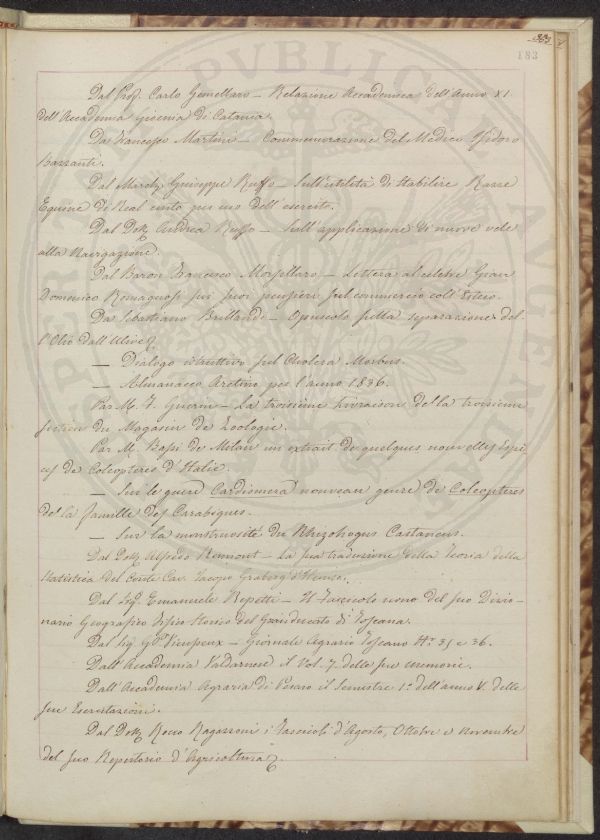 183
Dal Prof. Carlo Gemellaro — Relazione Accademica dell'Anno XI
dell'Accademia gioenia di Catania.
Da Francesco Martini — Commemorazione del Medico Isidoro
Bazzanti.
Dal March. Giuseppe Ruffo — Sull'utilità di stabilire Razze
Equine di Real conto per uso dell'esercito.
Dal Dott. Andrea Ruffo — Sull'applicazione di nuove vele
alla Navigazione.
Dal Baron Francesco — Lettera al celebre Gian
Domenico Romagnosi sui suoi pensieri sul commercio coll'Estero.
Da Sebastiano Brillandi — Opuscolo sulla separazione del
l'Olio dall'Ulive
— Dialogo istruttivo sul Cholera Morbus.
— Almanacco Aretino per l'anno 1836.
Par M. F. Guerin — La troisième livraison della troisieme
section du Magasin de Zoologie.
Par M. Bassi de Milan un extrait de quelques nouvelles Espe
ces de Coleopteres d'Italie.
— Sur le genre Cardiomera nouveau genre de Coleopteres
de la famille des Carabiques.
— Sur la monstruosité du Rhizotrogus Castaneus.
Dal Dott. Alfredo Reumont — La sua traduzione della Teoria della
Statistica del Conte Cav. Jacopo Graberg d'Hemso.
Dal Sig. Emanuele Repetti — Il Fascicolo nono del suo Dizio-
nario Geografico Fisico Storico del Granducato di Toscana.
Dal Sig. G. P. Vieusseux — Giornale Agrario Toscano N.i 35 e 36.
Dall'Accademia Valdarnese il Vol. 7. delle sue memorie.
Dall'Accademia Agraria di Pesaro il Semestre 1.o dell'anno V. delle
sue Esercitazioni.
Dal Dott. Rocco Ragazzoni i Fascicoli d'Agosto, Ottobre e Novembre
del suo Repertorio d'Agricoltura